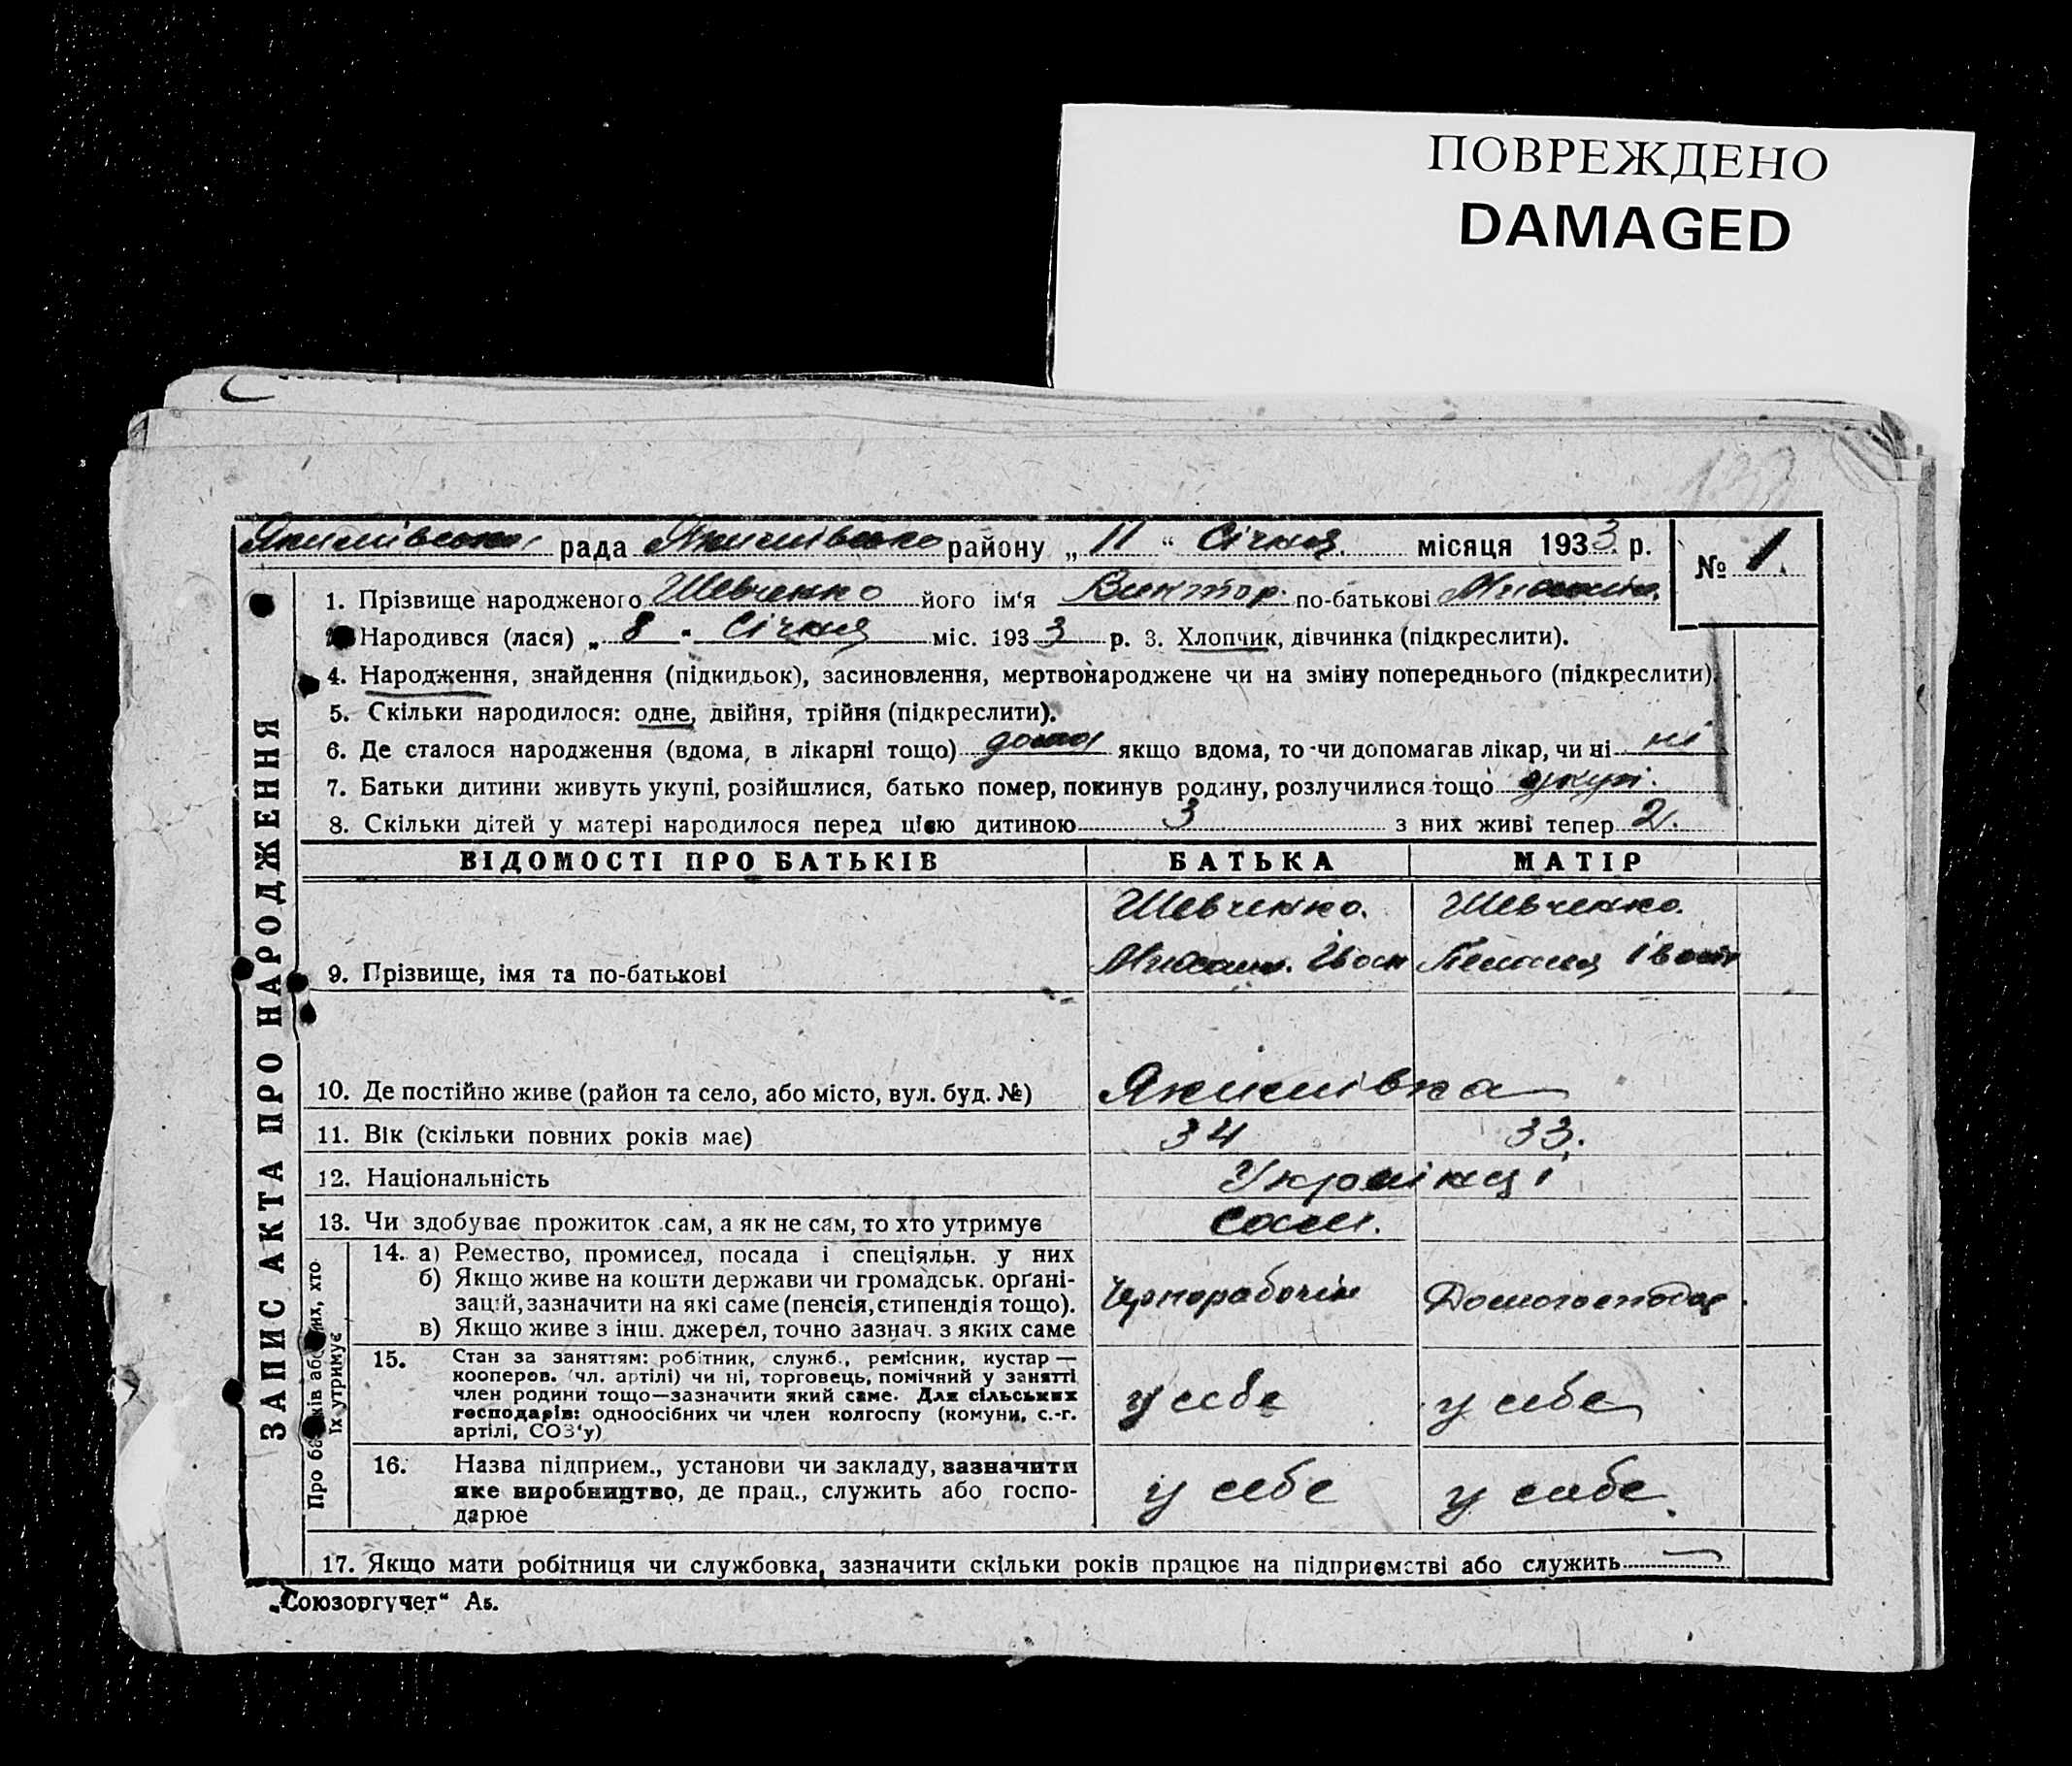 ПОВРЕЖДЕНО
DAMAGED
Якимівська рада Якимівсько району „ 11 “ Січня місяця 1933 р.
№ 1.
ЗАПИС АКТА ПРО НАРОДЖЕННЯ
1. Прізвище народженого Шевченко його ім‘я Виктор. по-батькові
Народився (лася) „ 8 “ Січня міс. 1933 р. 3. Хлопчик, дівчинка (підкреслити).
4. Народження, знайдення (підкидьок), засиновлення, мертвонароджене чи на зміну попереднього (підкреслити)
5. Скільки народилося: одне, двійня, трійня (підкреслити).
6. Де сталося народження (вдома, в лікарні тощо) дома якщо вдома, то чи допомагав лікар, чи ні ні
7. Батьки дитини живуть укупі, розійшлися, батько помер, покинув родину, розлучилися тощо укупі.
8. Скільки дітей у матері народилося перед цією дитиною 3 з них живі тепер 2.
ВІДОМОСТІ ПРО БАТЬКІВ БАТЬКА МАТІР
Шевченко. Шевченко.
9. Прізвище, імя та по-батькові Іван Іван
10. Де постійно живе (район та село, або місто, вул. буд. №) Якимівка
11. Вік (скільки повних років має) 34 33.
12. Національність Українці
13. Чи здобуває прожиток сам, а як не сам, то хто утримує Сам.
Про ба ків або них, хто
їх утримує
14. а) Ремество, промисел, посада і спеціяльн. у них
б) Якщо живе на кошти держави чи громадськ. органі-
зацій, зазначити на які саме (пенсія, стипендія тощо). Чернорабочій Домогосподар.
в) Якщо живе з інш. джерел, точно зазнач. з яких саме
15. Стан за заняттям: робітник, служб., ремісник, кустар —
кооперов. (чл. артілі) чи ні, торговець, помічний у занятті
член родини тощо—зазначити який саме. Для сільських у себе у себе
господарів: одноосібних чи член колгоспу (комуни, с.-г.
артілі, СОЗ‘у)
16. Назва підприєм., установи чи закладу, зазначити
яке виробництво, де прац., служить або госпо- у себе у себе.
дарює
17. Якщо мати робітниця чи службовка, зазначити скільки років працює на підприємстві або служить —
„Союзоргучет“ Аз.